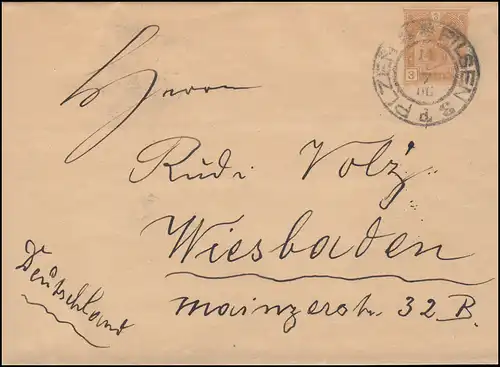 PLZEŇ PILSEN
14
7
06
3
Herrn
Rudi Volz
Wiesbaden
Mainzerstr. 32 B.
Deutschland